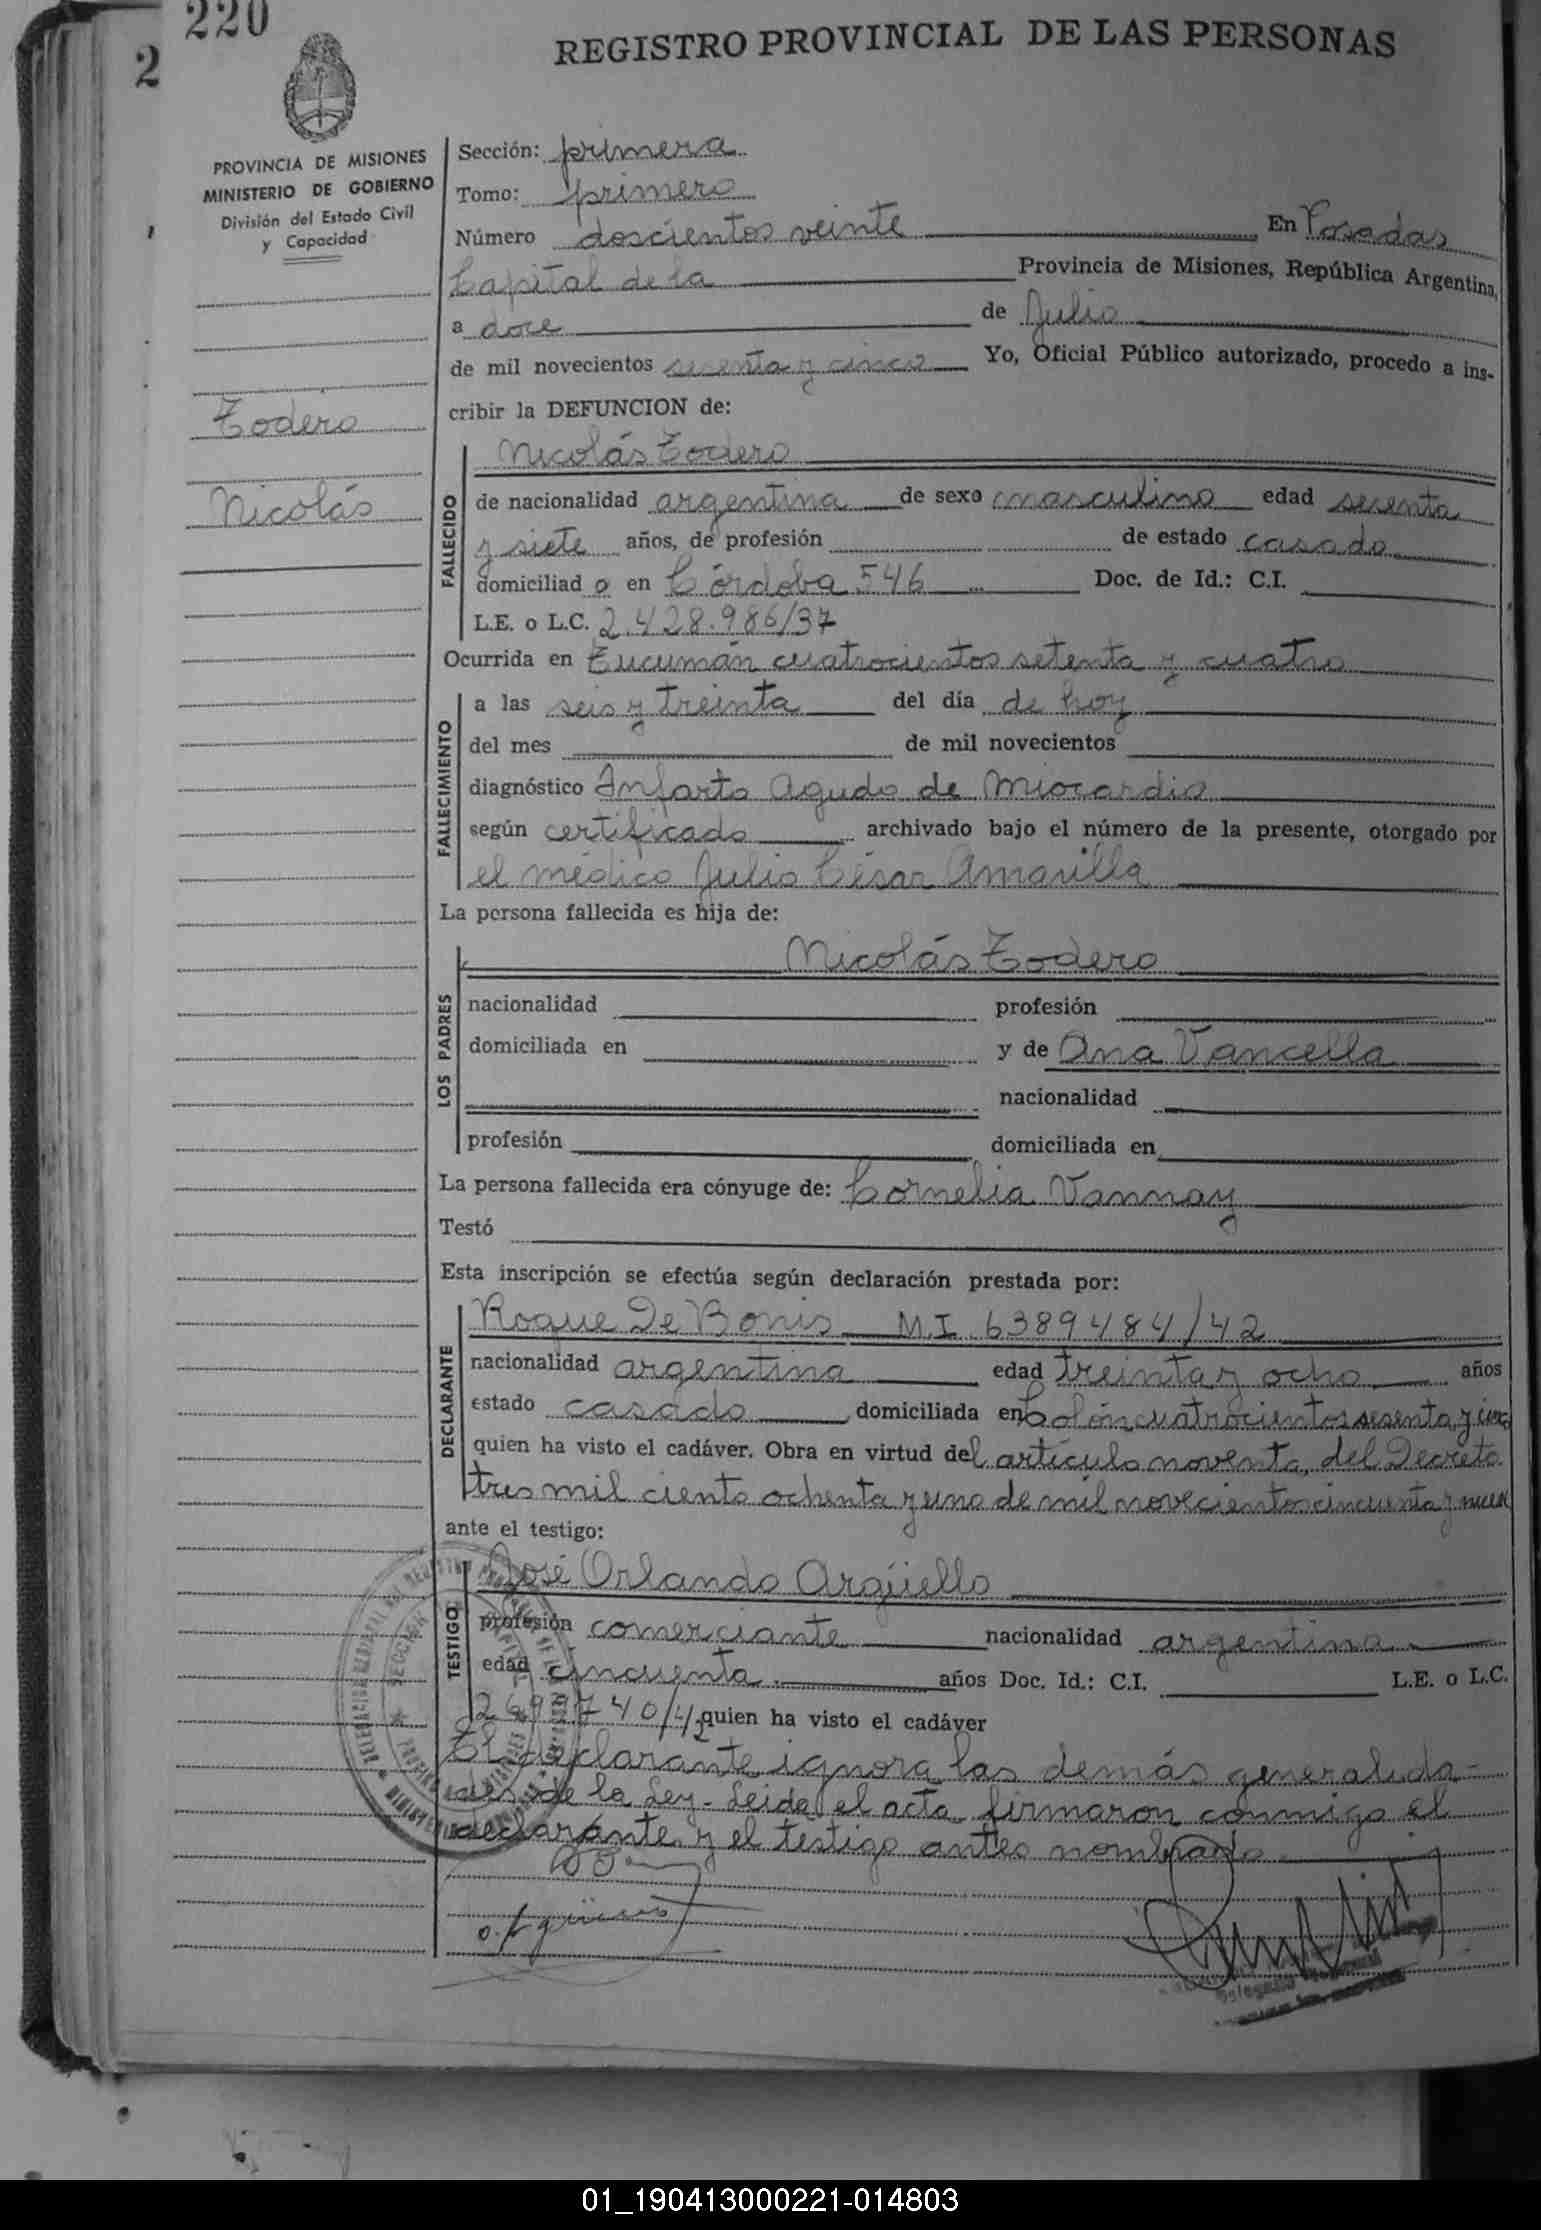 220
2
REGISTRO PROVINCIAL DE LAS PERSONAS
PROVINCIA DE MISIONES
MINISTERIO DE GOBIERNO
División del Estado Civil
y Capacidad
Todero
Nicolás
Sección: primera
Tomo: primero
Número doscientos veinte En Posadas
Capital de la Provincia de Misiones, República Argentina,
a doce de Julio
de mil novecientos sesenta y cinco Yo, Oficial Público autorizado, procedo a ins-
cribir la DEFUNCION de:
FALLECIDO
Nicolás Todero
de nacionalidad argentina de sexo masculino edad sesenta
y siete años, de profesión de estado casado
domiciliado en Córdoba 546 Doc. de Id.: C.I.
L.E. o L.C. 2.428.986/37
Ocurrida en Tucumán cuatrocientos setenta y cuatro
FALLECIMIENTO
a las seis y treinta del día de hoy
del mes de mil novecientos
diagnóstico Infarto Agudo de Miocardio
según certificado archivado bajo el número de la presente, otorgado por
el médico Julio César Amarilla
La persona fallecida es hija de:
LOS PADRES
Nicolás Todero
nacionalidad profesión
domiciliada en y de Ana Vancella
nacionalidad
profesión domiciliada en
La persona fallecida era cónyuge de: Cornelia Vannay
Testó
Esta inscripción se efectúa según declaración prestada por:
DECLARANTE
Roque De Bonis M.I. 6389484/42
nacionalidad argentina edad treinta y ocho años
estado casado domiciliada en Colón cuatrocientos sesenta y cinco
quien ha visto el cadáver. Obra en virtud del artículo noventa, del Decreto
tres mil ciento ochenta y uno de mil novecientos cincuenta y nueve
ante el testigo:
TESTIGO
José Orlando Argüello
profesión comerciante nacionalidad argentina
edad cincuenta años Doc. Id.: C.I. L.E. o L.C.
quien ha visto el cadáver
El declarante ignora las demás generalida-
des de la Ley - Leida el acta firmaron conmigo el
declarante y el testigo antes nombrado.
01_190413000221-014803